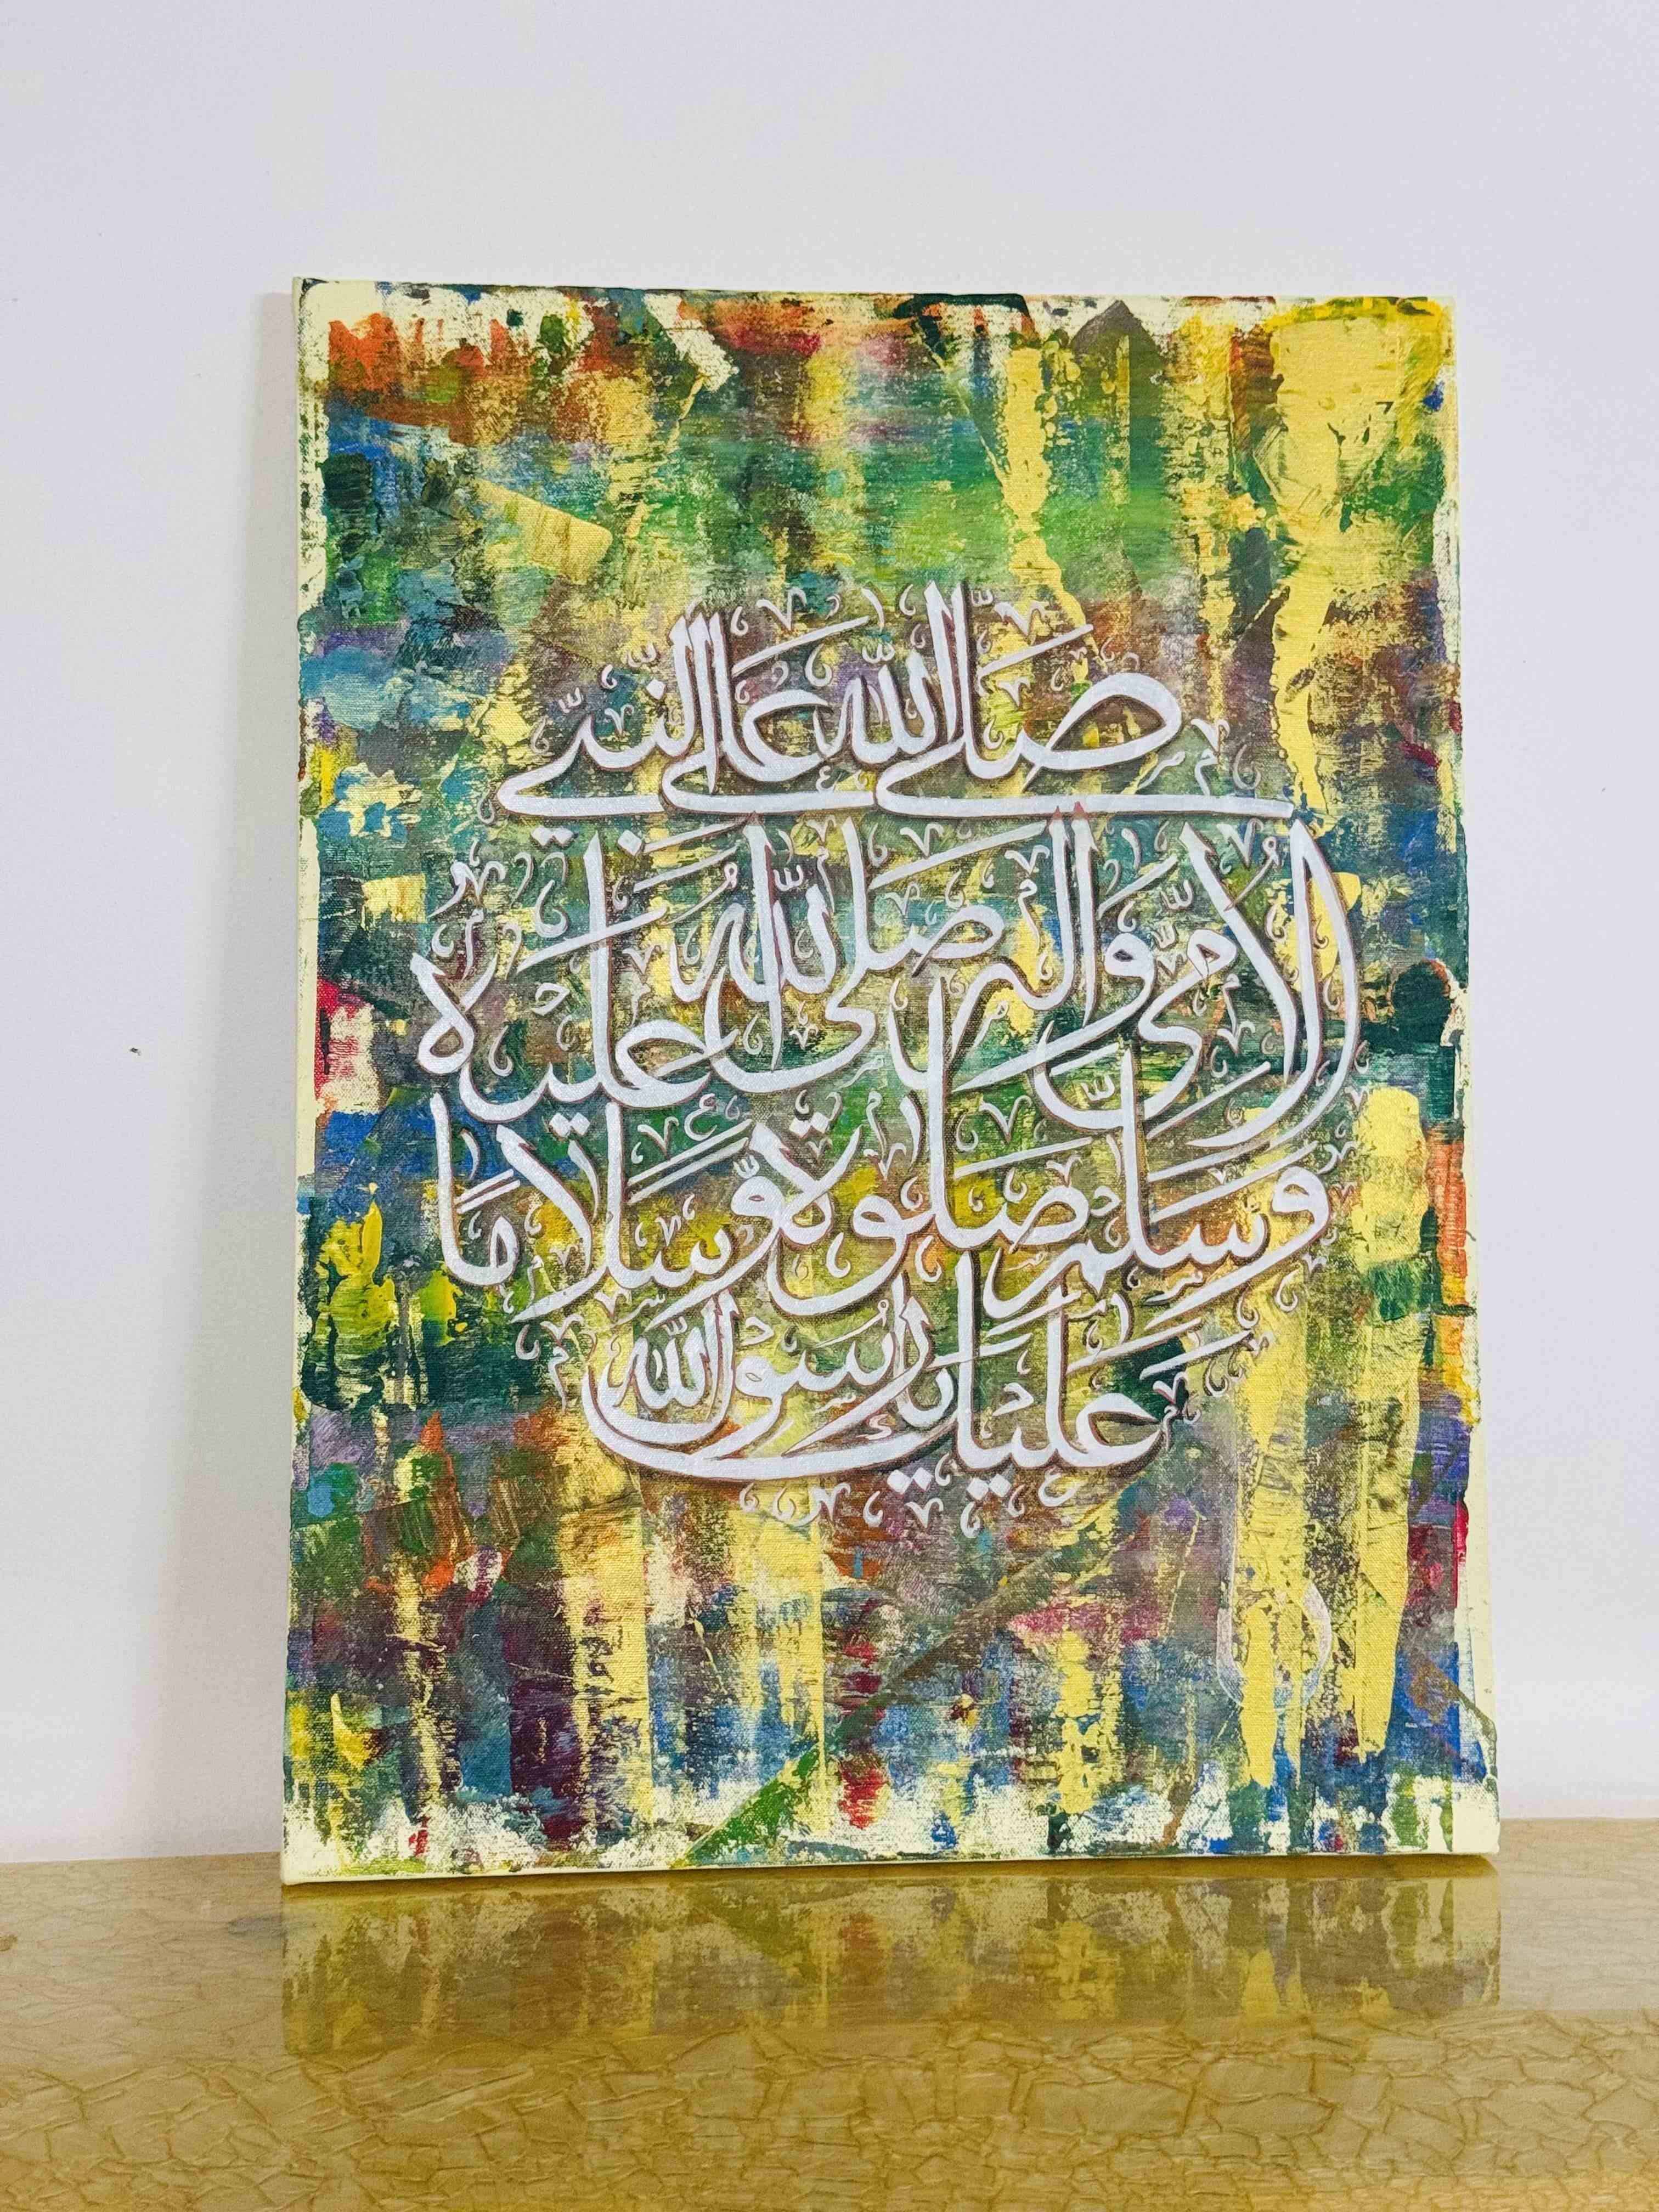 صلى الله على النبي
الأمي وآله صلى الله عليه
وسلم صلوة وسلاما
عليك يا رسول الله